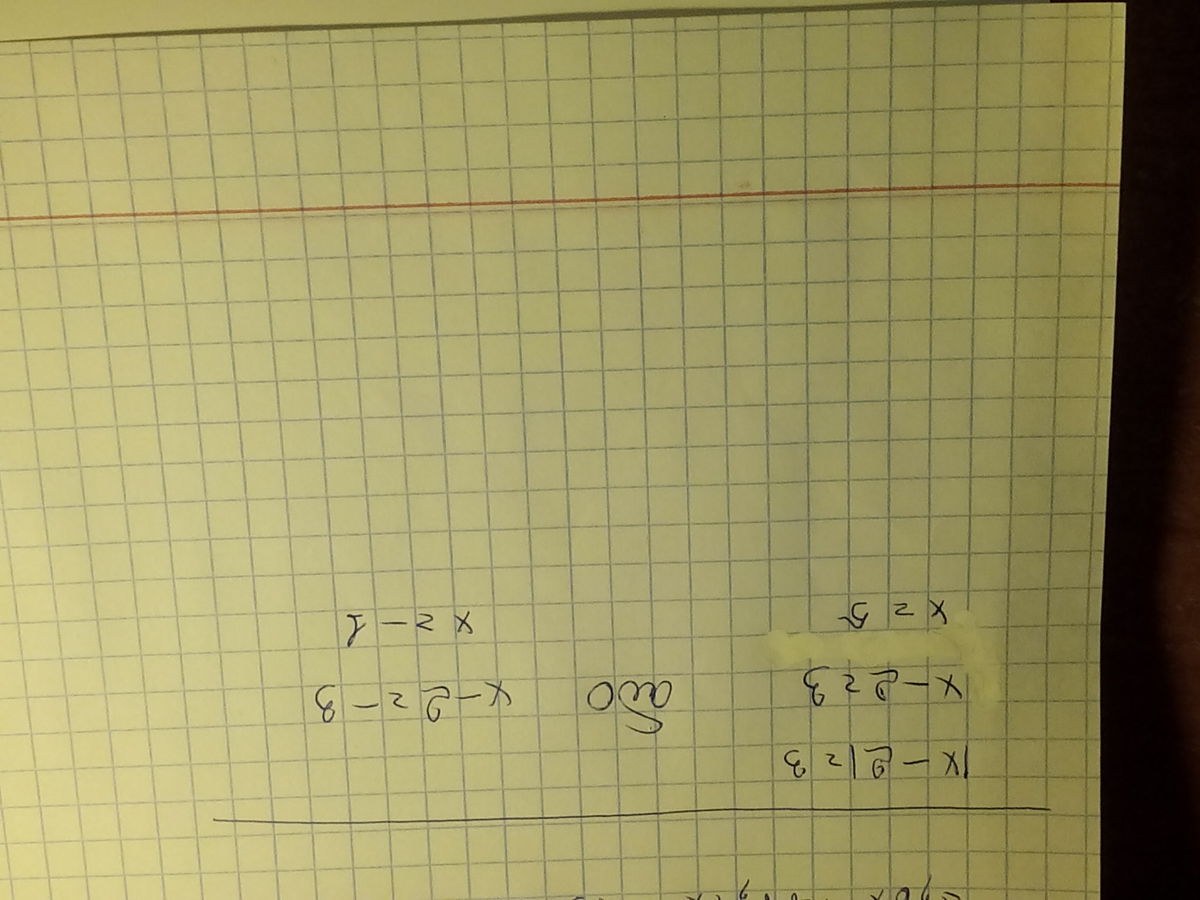 |x - 2| = 3
x - 2 = 3 або x - 2 = - 3
x = 5 x = - 1